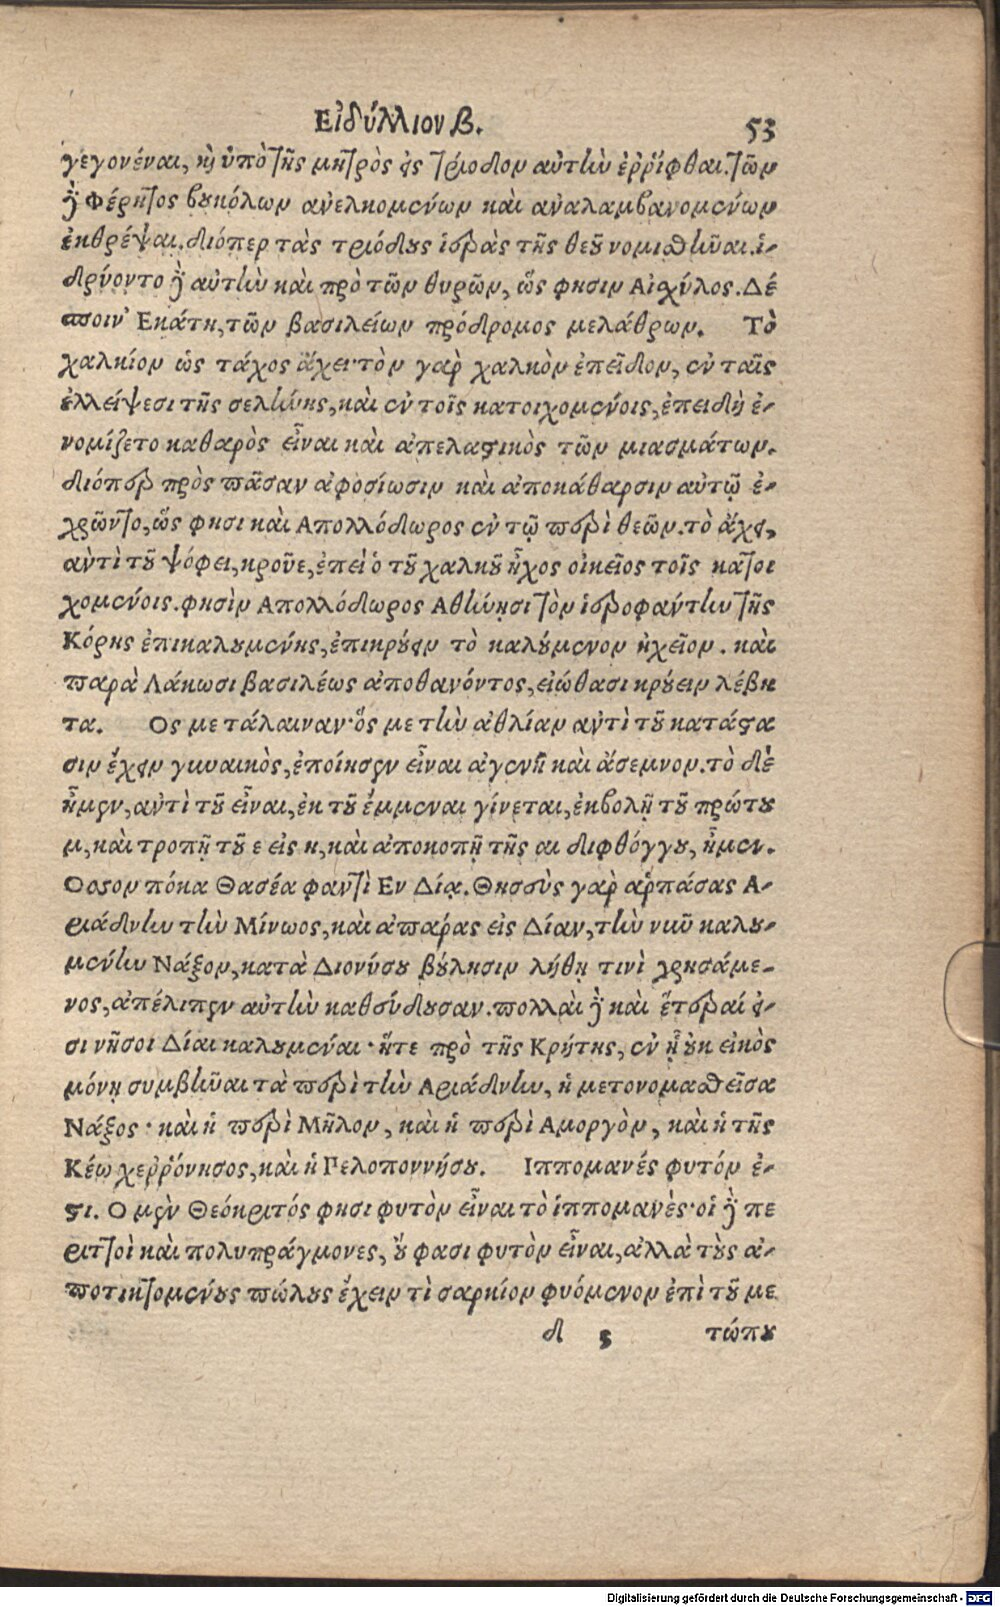 Εἰδύλλιον β. 53
γεγονέναι, καὶ ὑπὸ τῆς μητρὸς εἰς τρίοδον αὐτὴν ἐῤῥίφθαι. τῶν
δὲ Φέρητος βουκόλων ἀνελκομένων καὶ ἀναλαμβανομένων
ἐκθρέψαι. διόπερ τὰς τριόδους ἱερὰς τῆς θεοῦ νομισθῆναι. ἱ-
δρύοντο δὲ αὐτὴν καὶ πρὸ τῶν θυρῶν, ὥς φησιν Αἰσχύλος. Δέ
σποιν' Εκάτη, τῶν βασιλείων πρόδρομος μελάθρων. Τὸ
χαλκίον ὡς τάχος ἄχει· τὸν γὰρ χαλκὸν ἐπεῖδον, ἐν ταῖς
ἐλλείψεσι τῆς σελήνης, καὶ ἐν τοῖς κατοιχομένοις, ἐπειδὴ ἐ-
νομίζετο καθαρὸς εἶναι καὶ ἀπελαστικὸς τῶν μιασμάτων.
διόπερ πρὸς πᾶσαν ἀφοσίωσιν καὶ ἀποκάθαρσιν αὐτῷ ἐ-
χρῶντο, ὥς φησι καὶ Απολλόδωρος ἐν τῷ περὶ θεῶν. τὸ ἄχει,
ἀντὶ τοῦ ψόφει, κροῦε, ἐπεὶ ὁ τοῦ χαλκοῦ ἦχος οἰκεῖος τοῖς κατοι
χομένοις. φησὶν Απολλόδωρος Αθήνησι τὸν ἱεροφάντην τῆς
Κόρης ἐπικαλουμένης, ἐπικρύειν τὸ καλούμενον ἠχεῖον. καὶ
παρὰ Λάκωσι βασιλέως ἀποθανόντος, εἰώθασι κρύειν λέβη
τα. Ος με τάλαιναν· ὅς με τὴν ἀθλίαν ἀντὶ τοῦ κατάστα
σιν ἔχειν γυναικὸς, ἐποίησεν εἶναι ἀγενῆ καὶ ἄσεμνον. τὸ δὲ
ἦμεν, ἀντὶ τοῦ εἶναι, ἐκ τοῦ ἔμμεναι γίνεται, ἐκβολῇ τοῦ πρώτου
μ, καὶ τροπῇ τοῦ ε εἰς η, καὶ ἀποκοπῇ τῆς αι διφθόγγου, ἦμεν.
Οσσον πόκα Θασέα φαντὶ Εν Δίᾳ. Θησεὺς γὰρ ἁρπάσας Α-
ριάδνην τὴν Μίνωος, καὶ ἀπάρας εἰς Δίαν, τὴν νῦν καλου-
μένην Νάξον, κατὰ Διονύσου βούλησιν λήθῃ τινὶ χρησάμε-
νος, ἀπέλιπεν αὐτὴν καθεύδουσαν. πολλαὶ δὲ καὶ ἕτεραί εἰ-
σι νῆσοι Δίαι καλούμεναι· ἥτε πρὸ τῆς Κρήτης, ἐν ᾗ οὐκ εἰκὸς
μόνῃ συμβῆναι τὰ περὶ τὴν Αριάδνην, ἡ μετονομασθεῖσα
Νάξος· καὶ ἡ περὶ Μῆλον, καὶ ἡ περὶ Αμοργὸν, καὶ ἡ τῆς
Κέω χεῤῥόνησος, καὶ ἡ Πελοποννήσου. Ιππομανές φυτόν ἐ-
στι. Ο μὲν Θεόκριτός φησι φυτὸν εἶναι τὸ ἱππομανὲς· οἱ δὲ πε
ριττοὶ καὶ πολυπράγμονες, οὔ φασι φυτὸν εἶναι, ἀλλὰ τοὺς ἀ-
ποτικτομένους πώλους ἔχειν τὶ σαρκίον φυόμενον ἐπὶ τοῦ με
δ ς τώπου
Digitalisierung gefördert durch die Deutsche Forschungsgemeinschaft - DFG